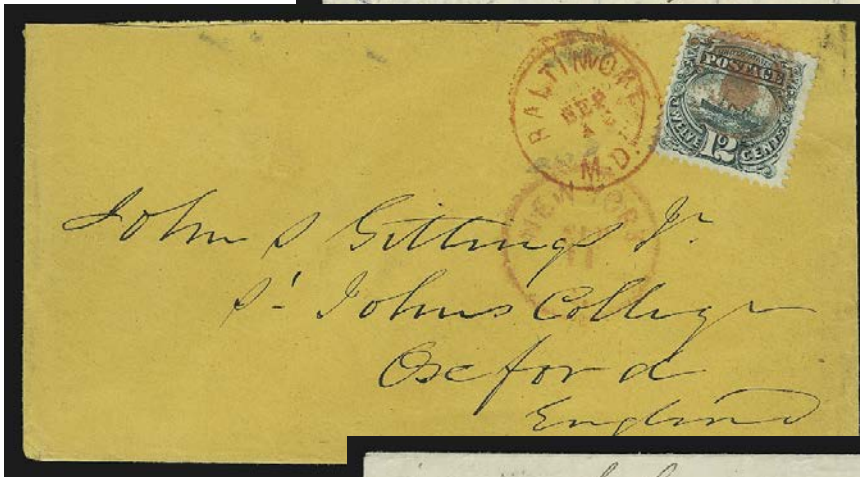 BALTIMORE
SEP
4
MD.
POSTAGE
TWELVE 12 CENTS
NEW YORK
11
John S Gittings Jr.
St Johns College
Oxford
England